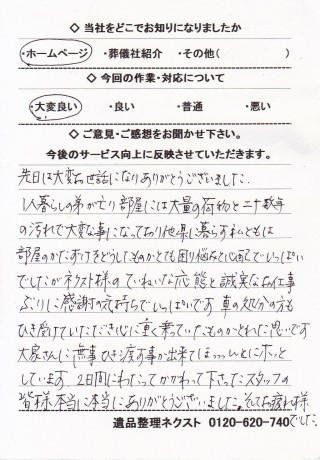 ◇ 当社をどこでお知りになりましたか
・ホームページ ・葬儀社紹介 ・その他( )
◇ 今回の作業・対応について
・大変良い ・良い ・普通 ・悪い
◇ ご意見・ご感想をお聞かせ下さい。
今後のサービス向上に反映させていただきます。
先日は大変お世話になりありがとうございました。
1人暮らしの弟が亡り部屋には大量の荷物と二十数年
の汚れで大変な事になっており他県に暮らす私どもは
部屋のかたずけをどうしたものかとても困り悩みと心配でいっぱい
でしたがネクスト様のていねいな応態と誠実なお仕事
ぶりに感謝の気持ちでいっぱいです 車の処分の方も
ひき受けていただき心に重く乗っていたものがとれた思いです
大家さんに無事ひき渡す事が出来てほっっんとにホッと
しています 2日間にわたってかかわって下さったスタッフの
皆様本当に本当にありがとうございました。そしてお疲れ様
でした。
遺品整理ネクスト 0120-620-740